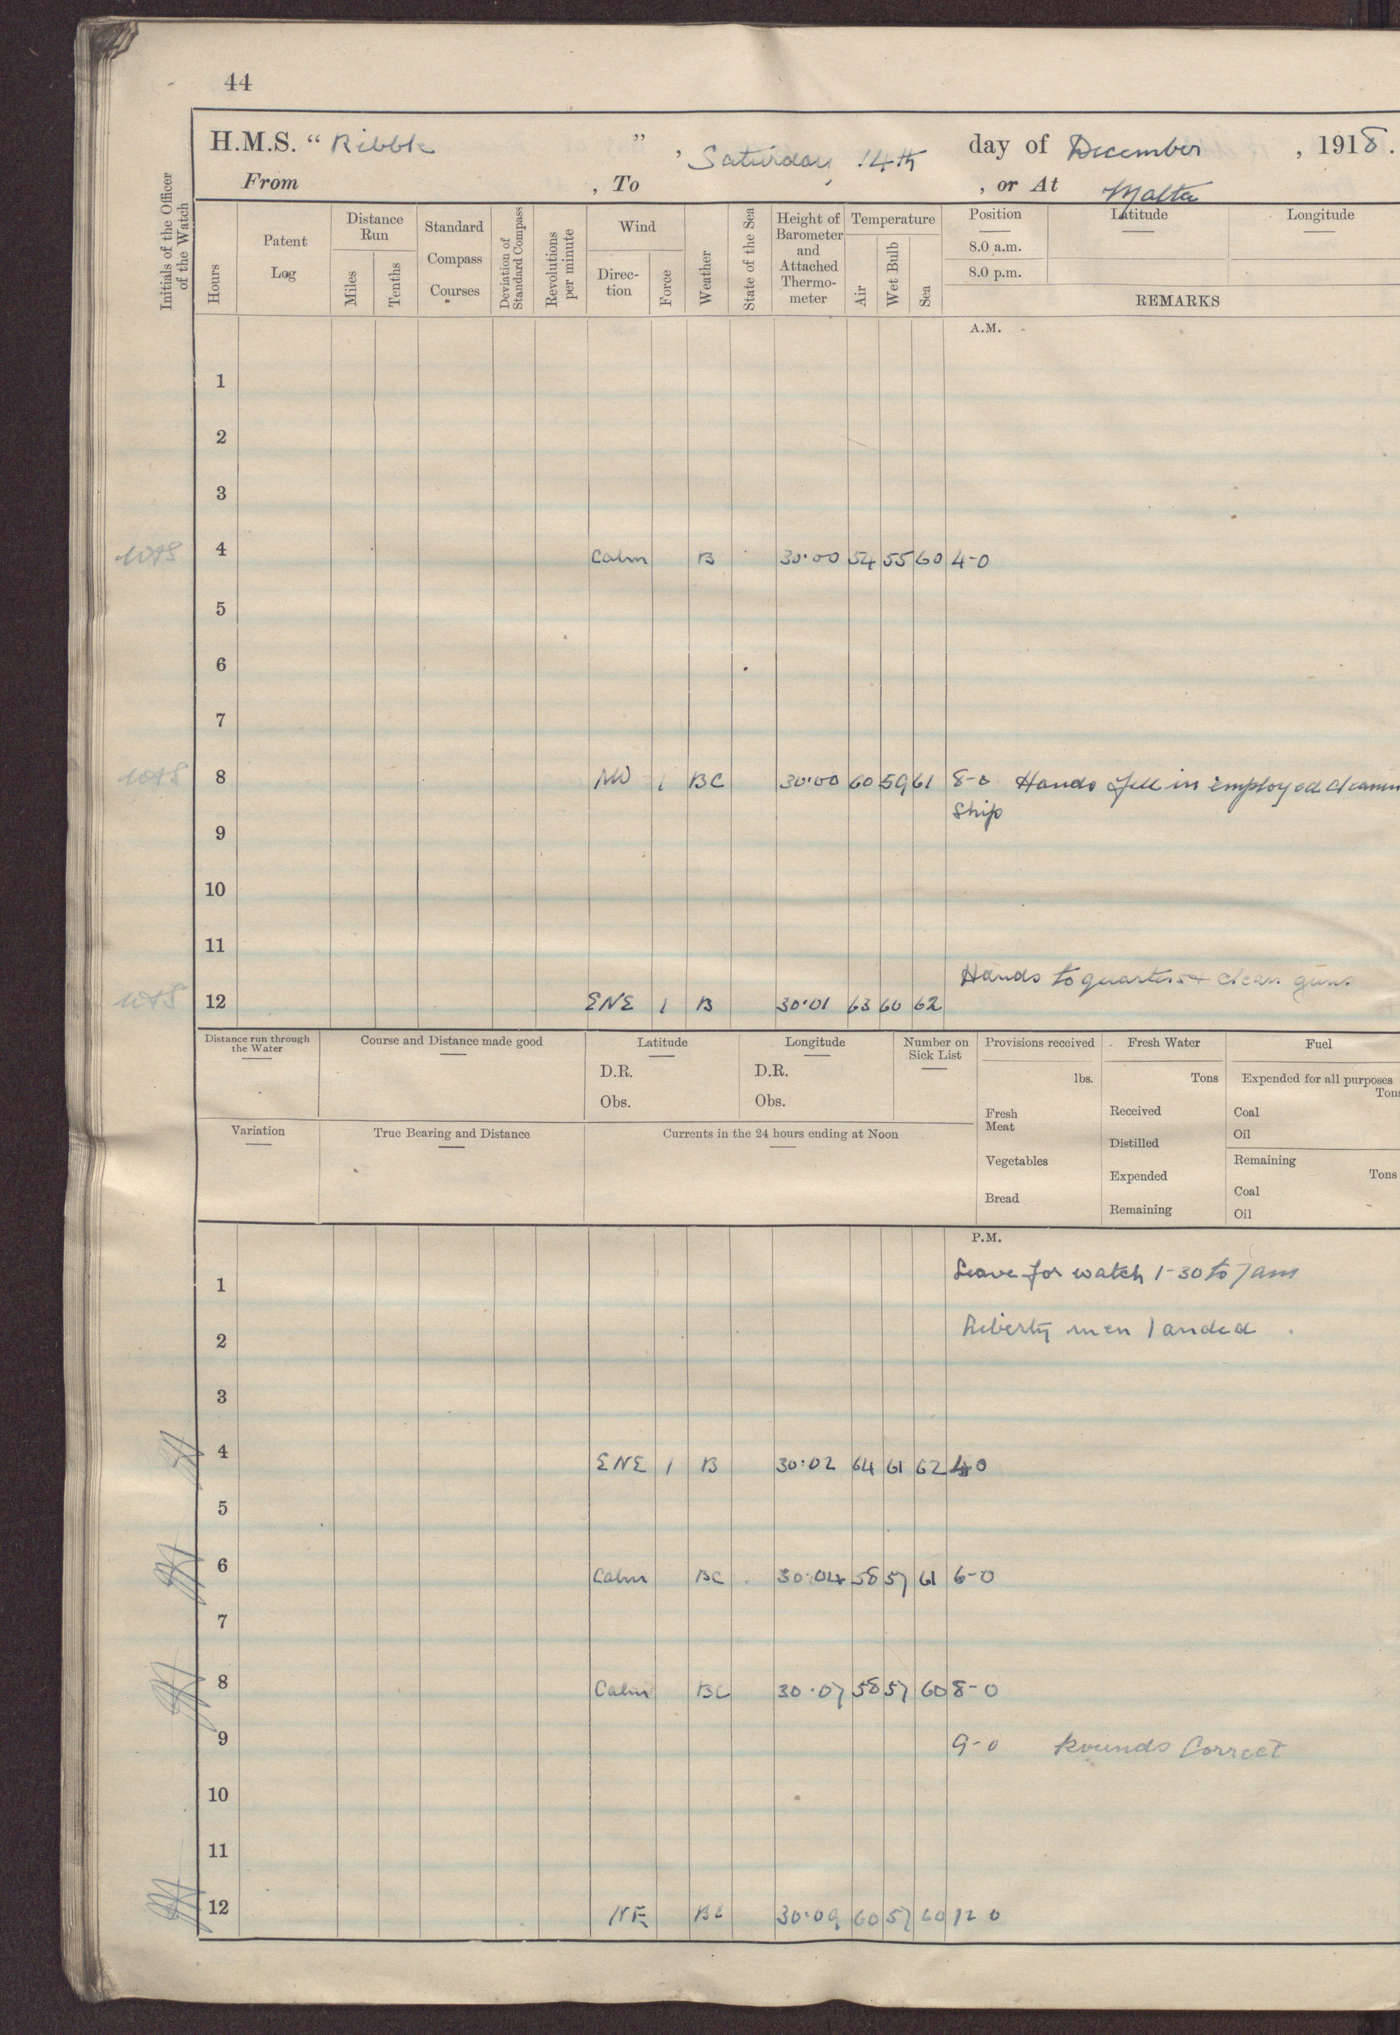 44
H.M.S. "Ribble", Saturday 14th day of December, 1918.
From , To , or At Malta
Initials of the Officer of the Watch
Hours
Patent Log
Distance Run
Miles
Tenths
Standard Compass Courses
Deviation of Standard Compass
Revolutions per minute
Wind
Direction
Force
Weather
State of the Sea
Height of Barometer and Attached Thermometer
Temperature
Air
Wet Bulb
Sea
Position
8.0 a.m.
8.0 p.m.
Latitude
Longitude
REMARKS
A.M.
1
2
3
4 Calm B 30.00 54 55 60 4-0
5
6
7
8 NW 1 BC 30.00 60 59 61 8-0 Hands fell in employed cleanin
Ship
9
10
11
Hands to quarters + clean guns
12 ENE 1 B 30.01 63 60 62
Distance run through the Water
Course and Distance made good
Latitude
D.R.
Obs.
Longitude
D.R.
Obs.
Number on Sick List
Provisions received
lbs.
Fresh Meat
Vegetables
Bread
Fresh Water
Tons
Received
Distilled
Expended
Remaining
Fuel
Expended for all purposes
Tons
Coal
Oil
Remaining
Tons
Coal
Oil
Variation
True Bearing and Distance
Currents in the 24 hours ending at Noon
P.M.
1 Leave for watch 1-30 to 7am
2 Liberty men landed
3
4 ENE 1 B 30.02 64 61 62 4 0
5
6 Calm BC 30.04 58 57 61 6-0
7
8 Calm BC 30.07 58 57 60 8-0
9 9-0 Rounds Correct
10
11
12 NE BC 30.09 60 57 60 12 0